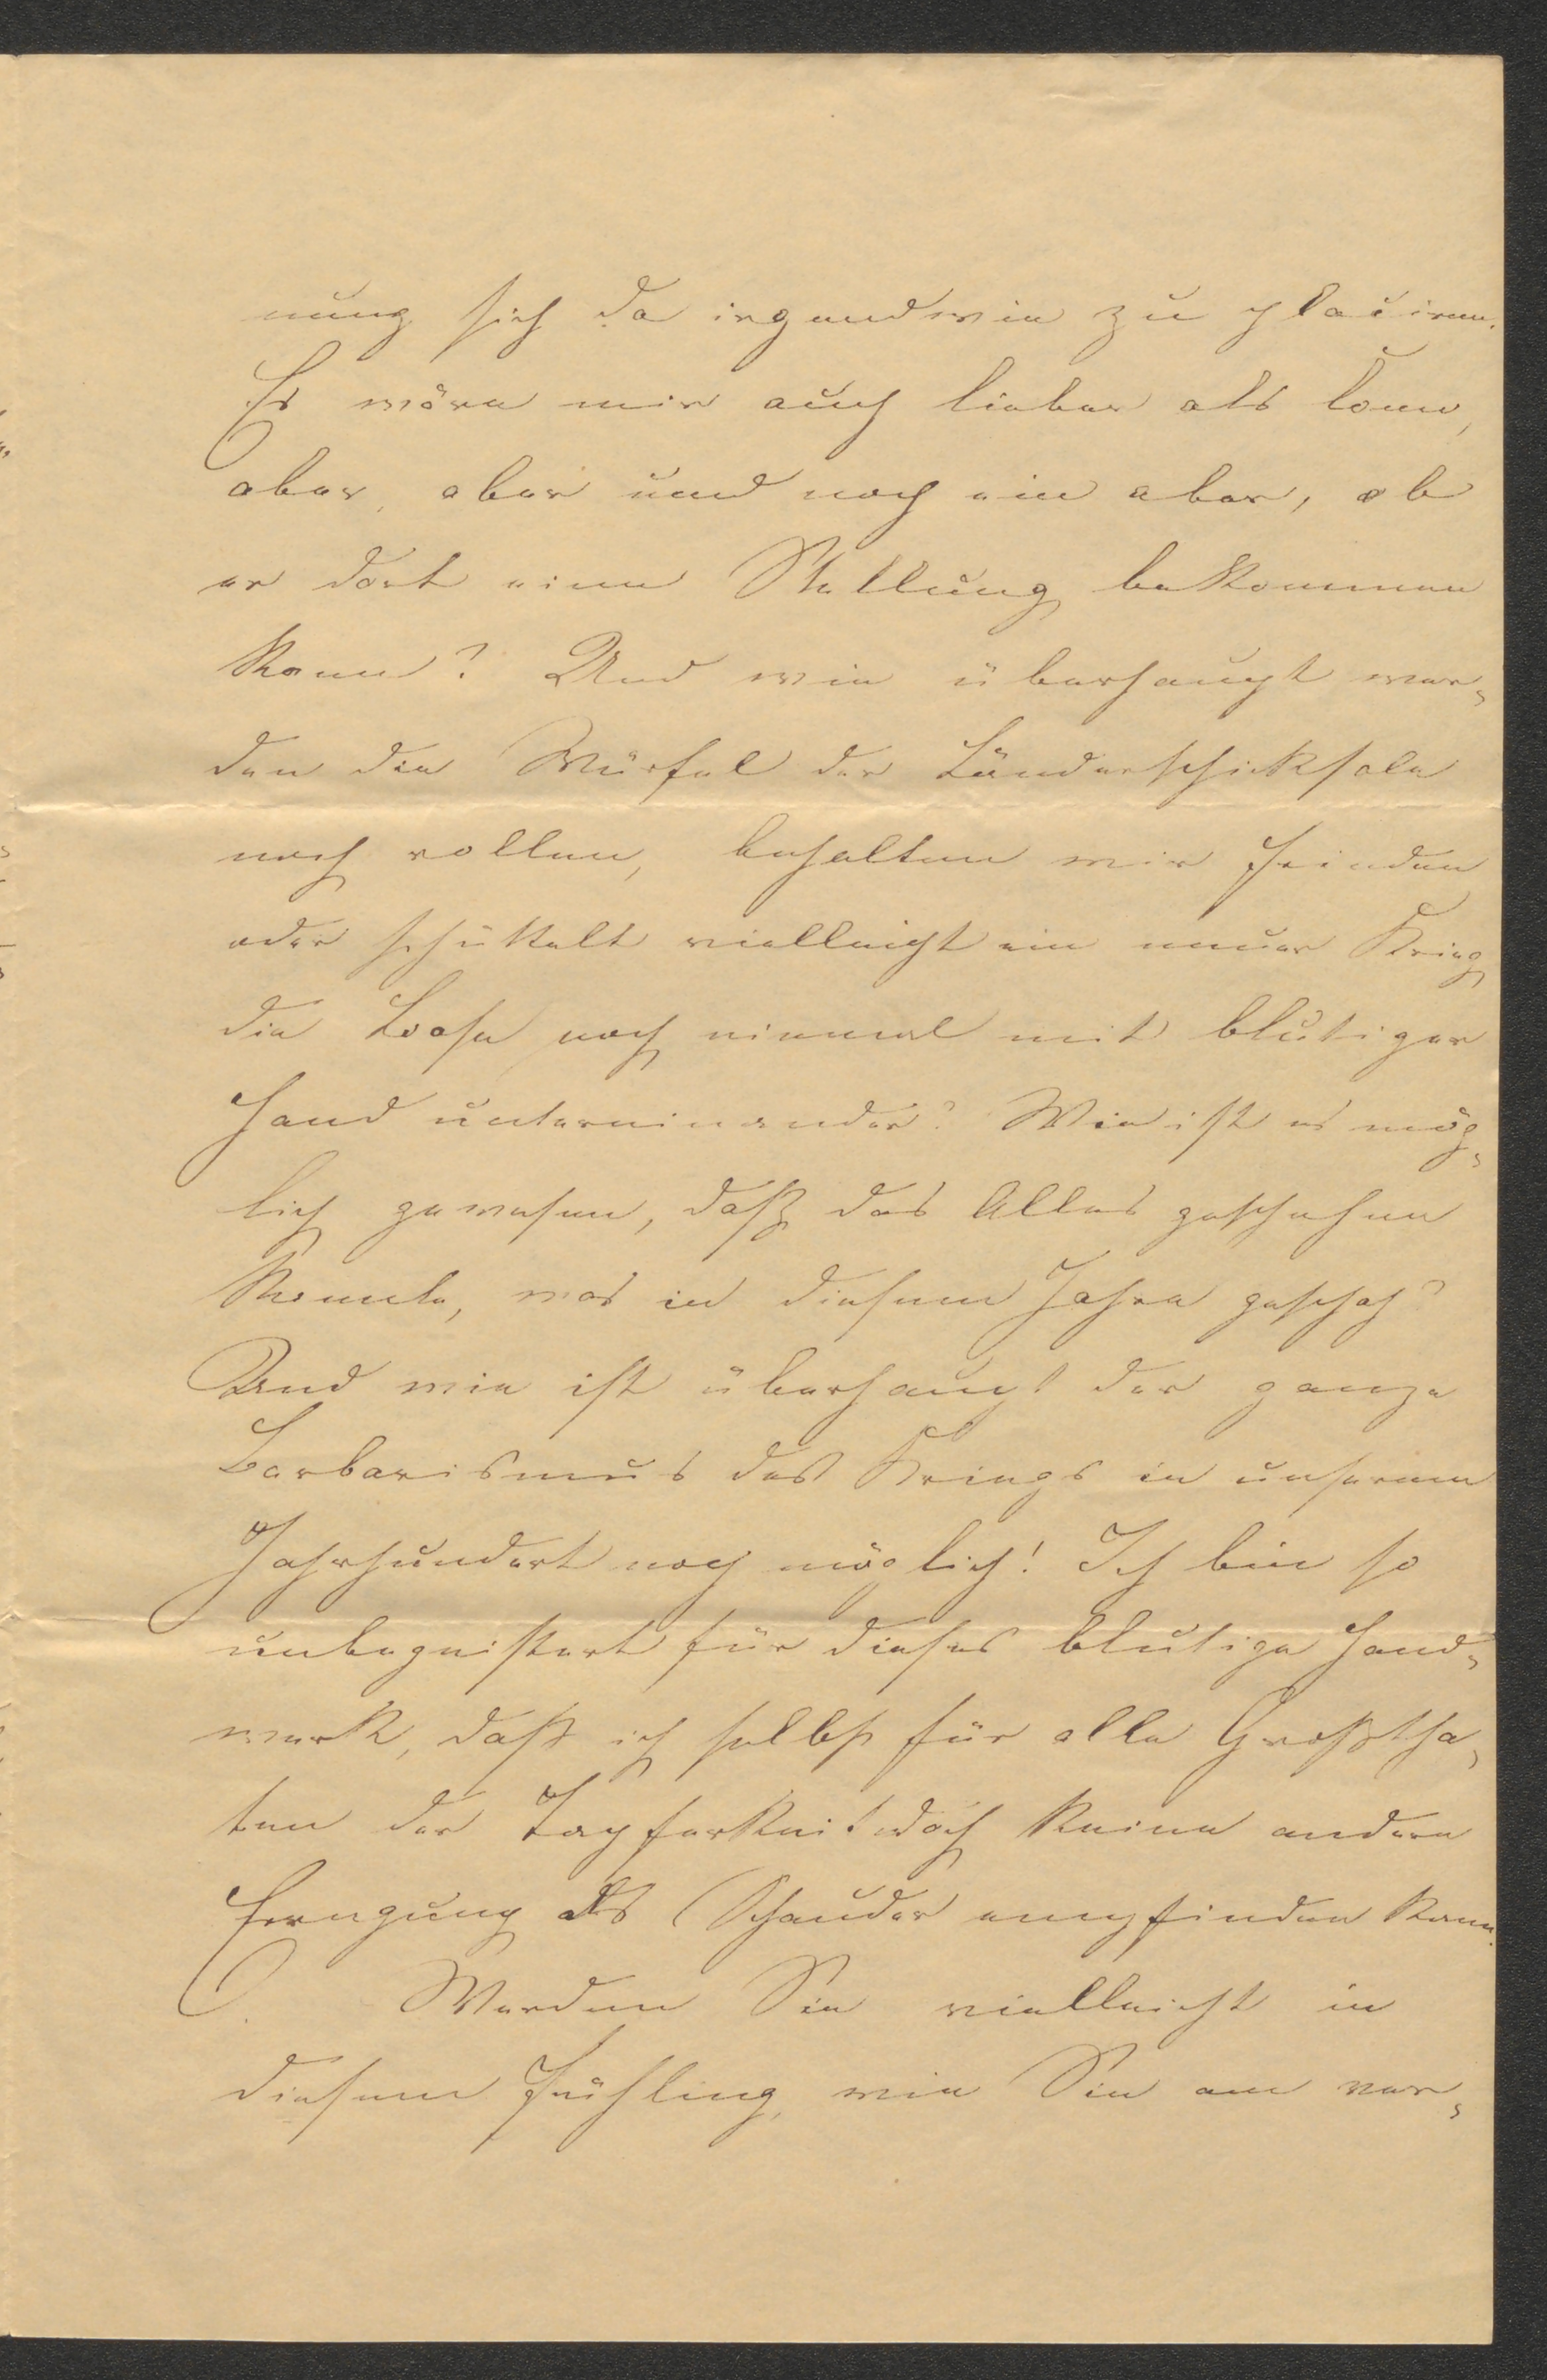 nung sich da irgendwie zu placiren.
Es wäre mir auch lieber als Bonn,
aber, aber und noch ein aber, ob
er dort eine Stellung bekommen
kann? Und wie überhaupt wer-
den die Würfel der Länderschicksale
noch rollen, behalten wir Frieden
oder schüttelt vielleicht ein neuer Krieg
die Loose noch einmal mit blutiger
Hand untereinander? Wie ist es mög-
lich gewesen, daß das Alles geschehen
konnte, was in diesem Jahre geschah?
Und wie ist überhaupt der ganze
Barbarismus des Kriegs in unserem
Jahrhundert noch möglich! Ich bin so
unbegeistert für dieses blutige Hand-
werk, daß ich selbst für alle Großtha-
ten der Tapferkeit doch keine andere
Erregung als Schauder empfinden kann.
Werden Sie vielleicht in
diesem Frühling, wie Sie am ver-